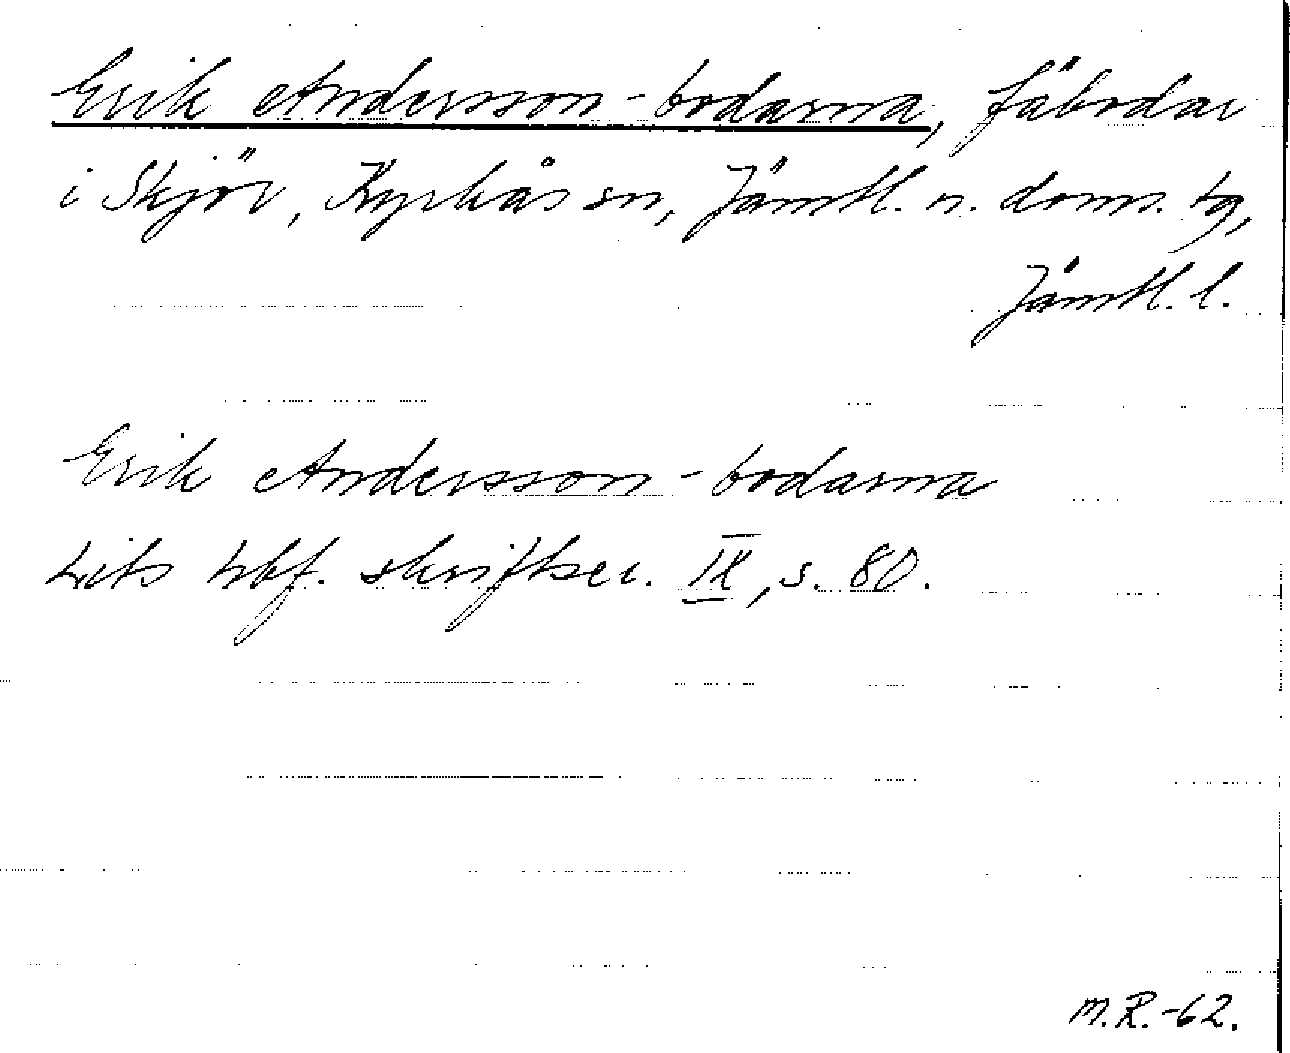 Erik Andersson-bodarna, fäbodar
i Skjör, Kyrkås sn, Jämtl. n. doms. tg,
Jämtl. l.
Erik Andersson-bodarna
Lits hbf. skriftser. IX, s. 80.
M.R.-62.